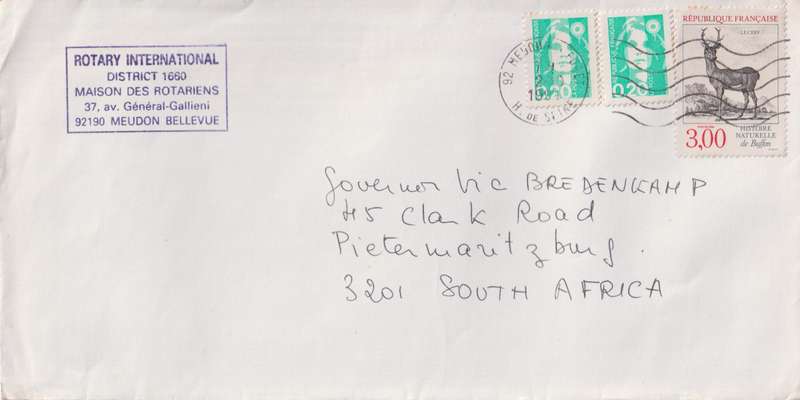 ROTARY INTERNATIONAL
DISTRICT 1660
MAISON DES ROTARIENS
37, av. Général-Gallieni
92190 MEUDON BELLEVUE
0,20
0,20
RÉPUBLIQUE FRANÇAISE
LE CERF
3,00
HISTOIRE
NATURELLE
de Buffon
92 MEUDON
H. DE SEINE
Governor Vic BREDENKAMP
45 Clark Road
Pietermaritzburg.
3201 SOUTH AFRICA